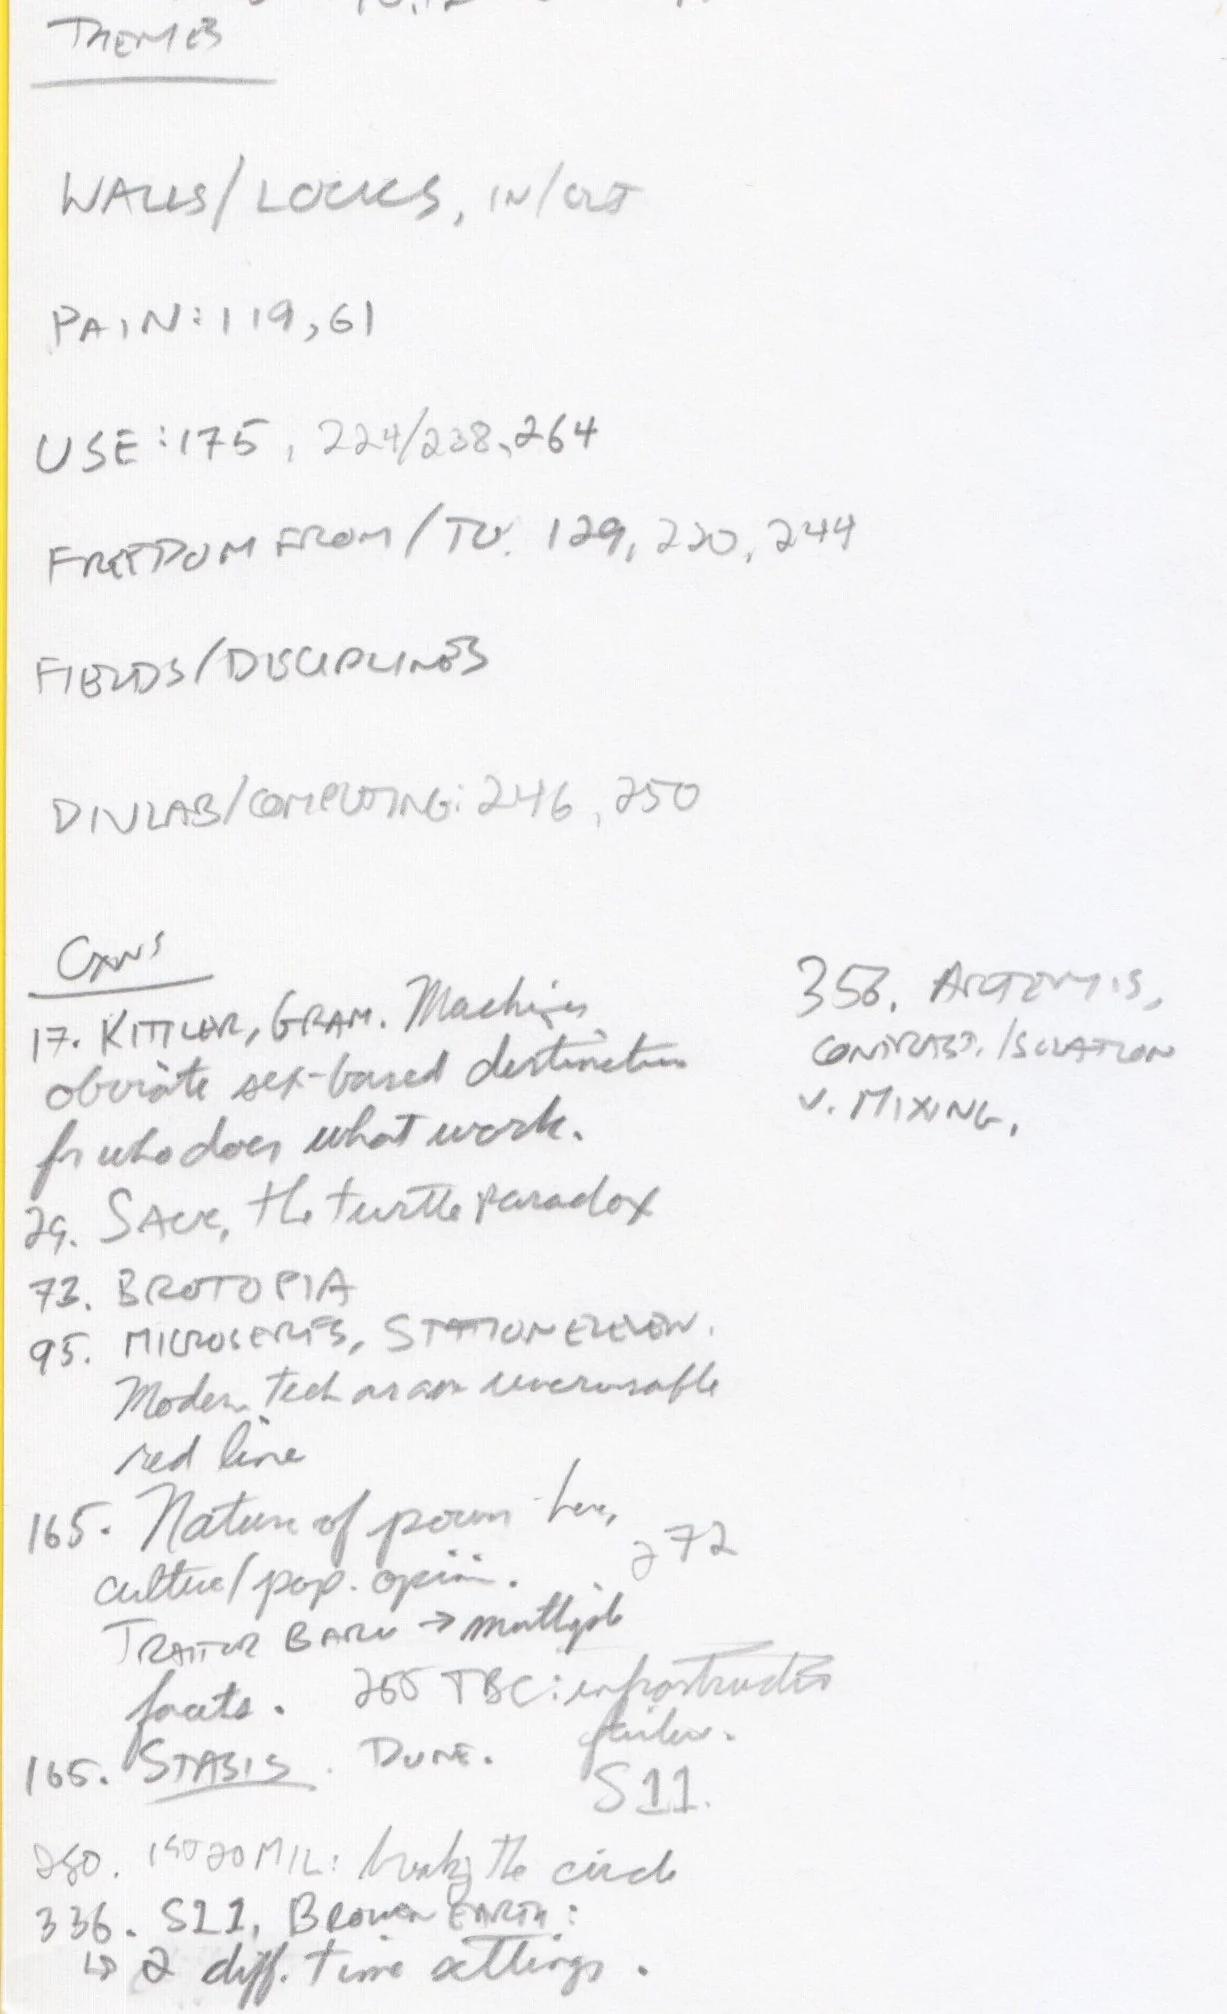 THEMES
WALLS/LOCKS, IN/OUT
PAIN: 119, 61
USE: 175, 224/238, 264
FREEDOM FROM/TO. 129, 220, 244
FIELDS/DISCIPLINES
DIVLAB/COMPUTING: 246, 250
CXNS
17. KITTLER, GRAM. Machines
obviate sex-based distinction
for who does what work.
29. the turtle paradox
73. BROTOPIA
95. MICROSERFS, STATION ELEVEN.
Modern tech as an uncrossable
red line
165. Nature of power here,
272
culture/pop. opinion.
TRAITOR BARU → multiple
facets. TBC: infrastructure
failure.
165. STASIS. DUNE.
S11.
280. breaking the circle
336. S11, BROKEN EARTH:
↳ 2 diff. time settings.
356. ARTEMIS,
CONTRAST. ISOLATION
V. MIXING.